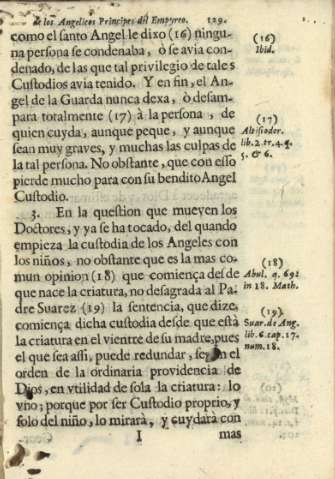 de los Angelicos Principes del Empyreo. 129.
como el santo Angel le dixo (16) ningu-
na persona se condenaba, ò se avia con-
denado, de las que tal privilegio de tales
Custodios avia tenido. Y en fin, el An-
gel de la Guarda nunca dexa, ò desam-
para totalmente (17) à la persona, de
quien cuyda, aunque peque, y aunque
sean muy graves, y muchas las culpas de
la tal persona. No obstante, que con esso
pierde mucho para con su bendito Angel
Custodio.
3. En la question que mueven los
Doctores, y ya se ha tocado, del quando
empieza la custodia de los Angeles con
los niños, no obstante que es la mas co-
mun opinion (18) que comiença desde
que nace la criatura, no desagrada al Pa-
dre Suarez (19) la sentencia, que dize,
comiença dicha custodia desde que està
la criatura en el vientre de su madre, pues
el que sea assi, puede redundar, segun el
orden de la ordinaria providencia de
Dios, en vtilidad de sola la criatura: lo
vno; porque por ser Custodio proprio, y
solo del niño, lo mirarà, y cuydarà con
I mas
(16)
Ibid.
(17)
Altisiodor.
lib. 2. tr. 4. q.
5. & 6.
(18)
Abul. q. 692
in 18. Math.
(19)
Suar. de Ang.
lib. 6. cap. 17.
num. 18.